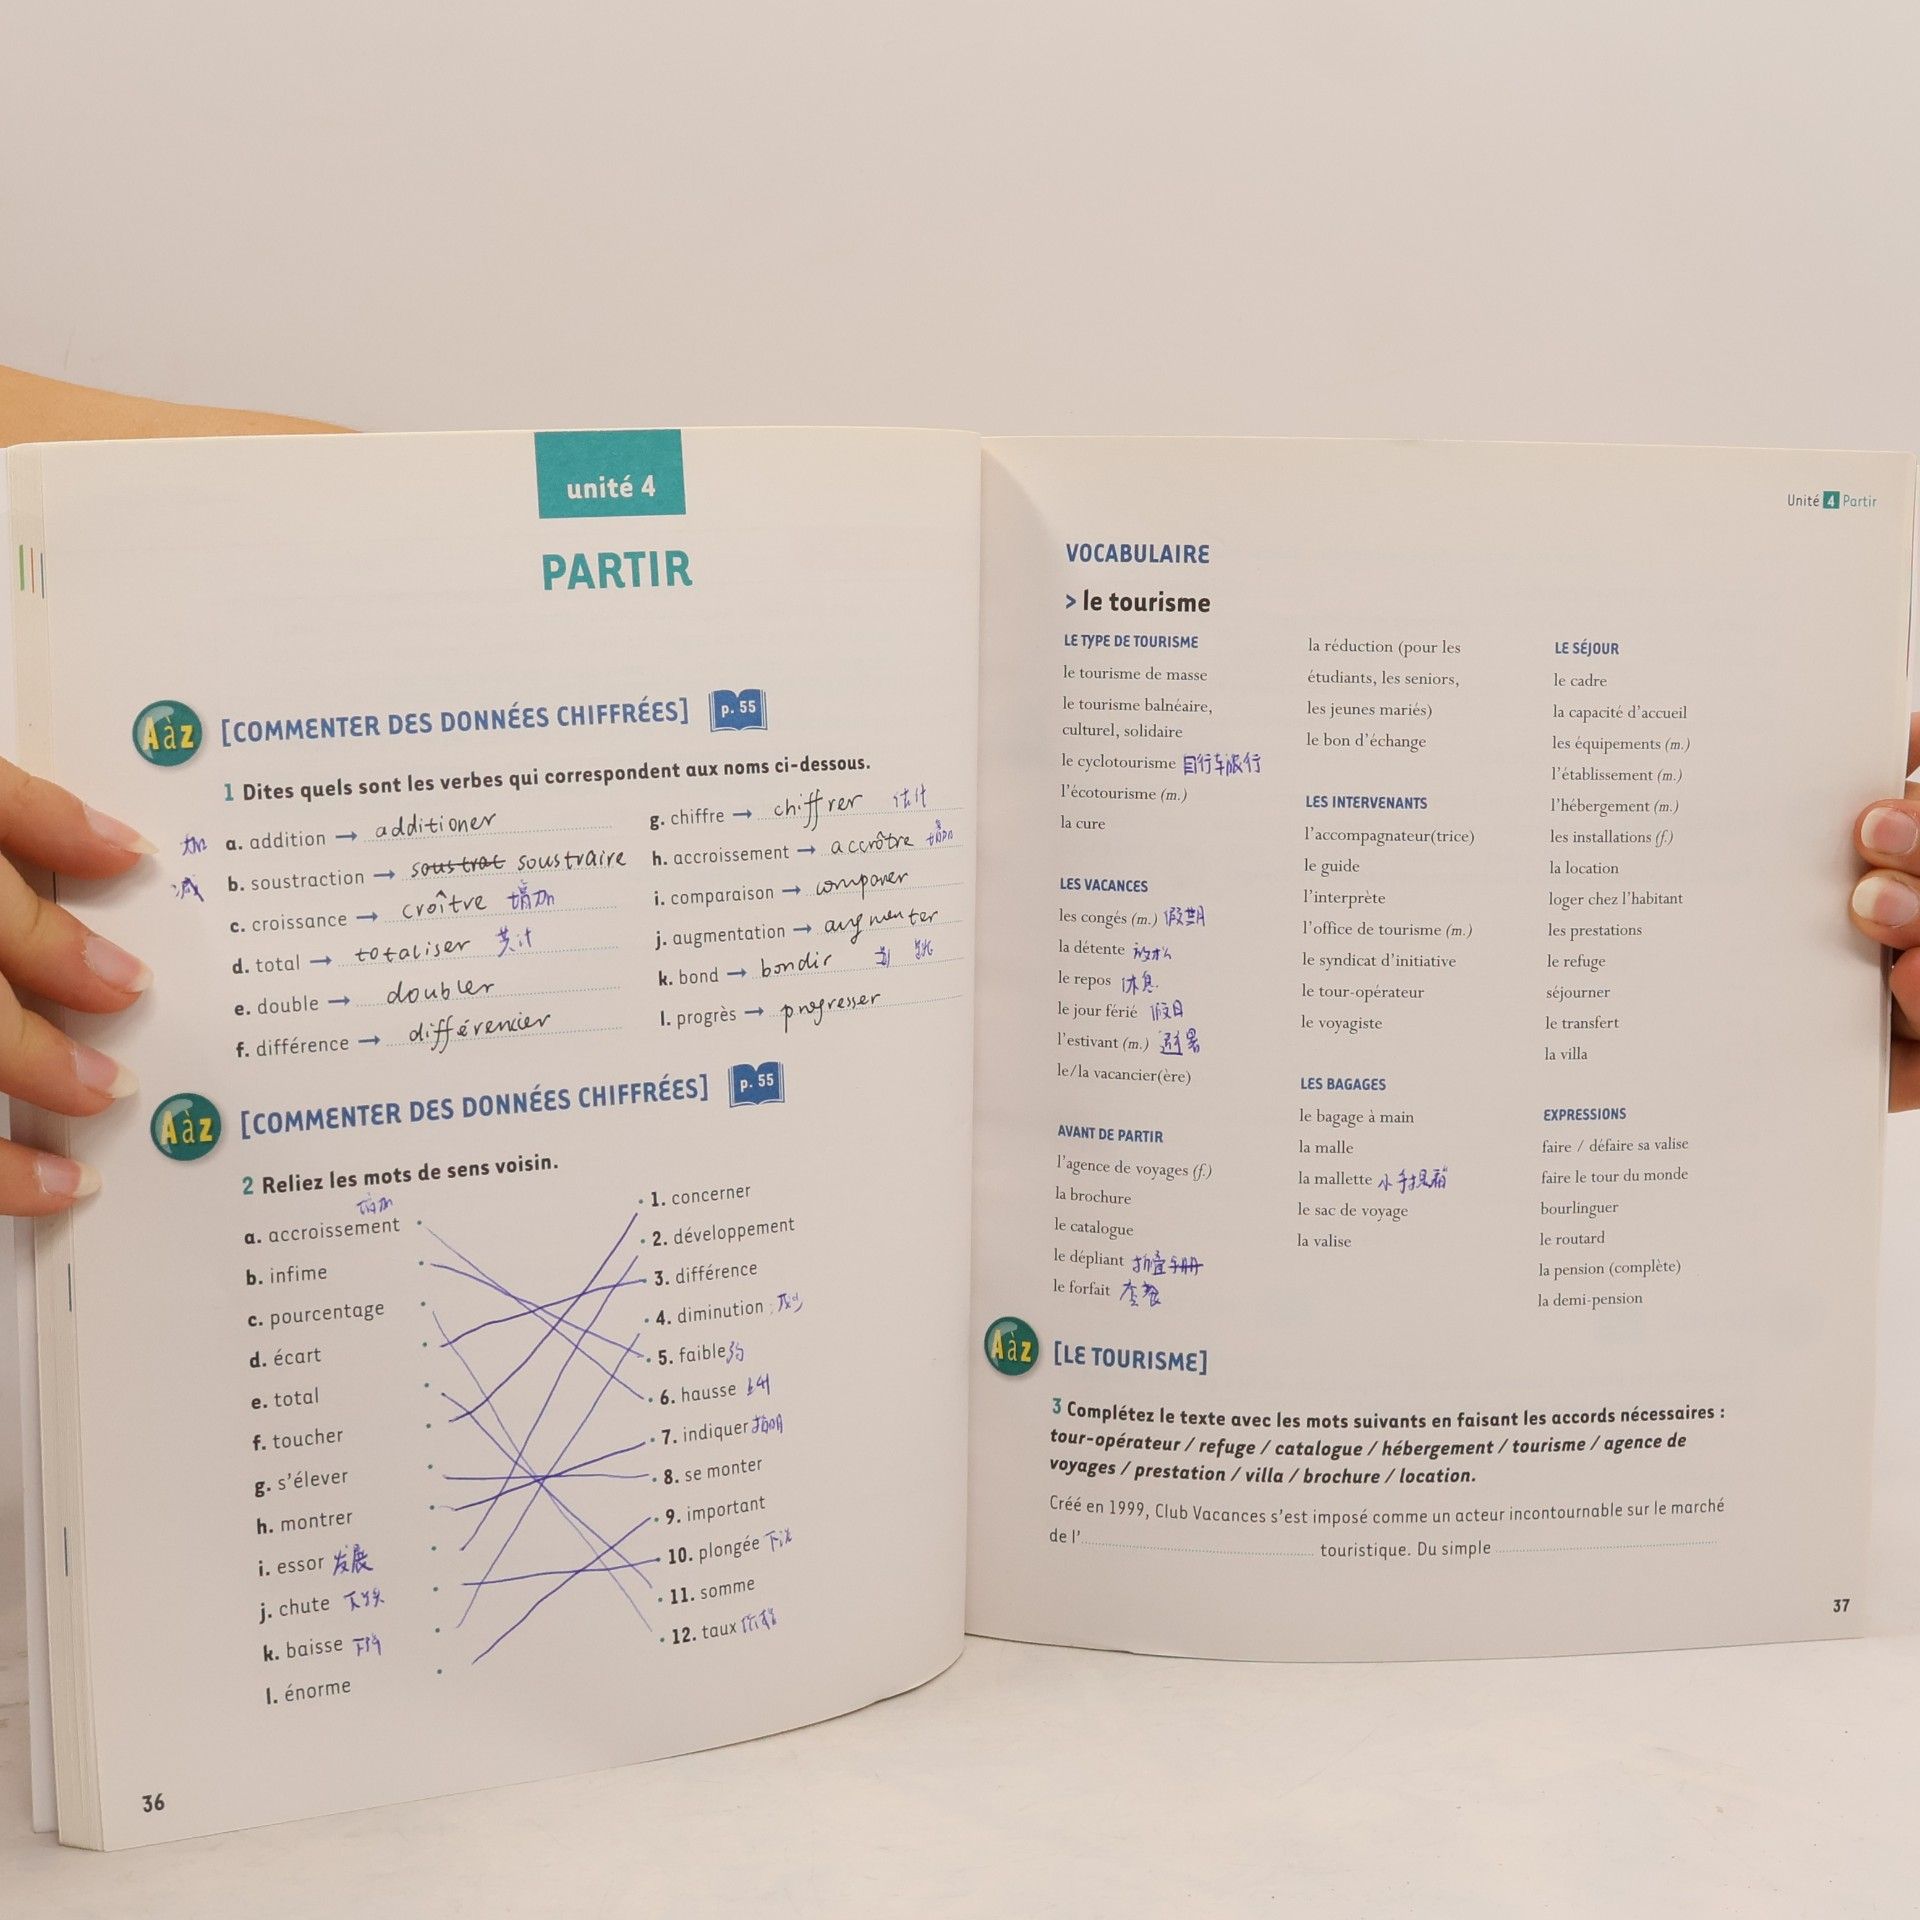 unité 4
PARTIR
Aàz [COMMENTER DES DONNÉES CHIFFRÉES] p. 55
1 Dites quels sont les verbes qui correspondent aux noms ci-dessous.
加 a. addition → additioner
减 b. soustraction → soustrat soustraire
c. croissance → croître 增加
d. total → totaliser 共计
e. double → doubler
f. différence → différencier
g. chiffre → chiffrer 估计
h. accroissement → accrôtre 增加
i. comparaison → comparer
j. augmentation → augmenter
k. bond → bondir 跳
l. progrès → progresser
Aàz [COMMENTER DES DONNÉES CHIFFRÉES] p. 55
2 Reliez les mots de sens voisin.
增加
a. accroissement
b. infime
c. pourcentage
d. écart
e. total
f. toucher
g. s'élever
h. montrer
i. essor 发展
j. chute 下跌
k. baisse 下降
l. énorme
1. concerner
2. développement
3. différence
4. diminution 减少
5. faible 弱
6. hausse 上升
7. indiquer 指明
8. se monter
9. important
10. plongée 下沉
11. somme
12. taux
36
Unité 4 Partir
VOCABULAIRE
> le tourisme
LE TYPE DE TOURISME
le tourisme de masse
le tourisme balnéaire,
culturel, solidaire
le cyclotourisme 自行车旅行
l'écotourisme (m.)
la cure
LES VACANCES
les congés (m.) 假期
la détente 放松
le repos 休息
le jour férié 假日
l'estivant (m.) 避暑
le/la vacancier(ère)
AVANT DE PARTIR
l'agence de voyages (f.)
la brochure
le catalogue
le dépliant 折叠手册
le forfait 套餐
la réduction (pour les
étudiants, les seniors,
les jeunes mariés)
le bon d'échange
LES INTERVENANTS
l'accompagnateur(trice)
le guide
l'interprète
l'office de tourisme (m.)
le syndicat d'initiative
le tour-opérateur
le voyagiste
LES BAGAGES
le bagage à main
la malle
la mallette 小手提箱
le sac de voyage
la valise
LE SÉJOUR
le cadre
la capacité d'accueil
les équipements (m.)
l'établissement (m.)
l'hébergement (m.)
les installations (f.)
la location
loger chez l'habitant
les prestations
le refuge
séjourner
le transfert
la villa
EXPRESSIONS
faire / défaire sa valise
faire le tour du monde
bourlinguer
le routard
la pension (complète)
la demi-pension
Aàz [LE TOURISME]
3 Complétez le texte avec les mots suivants en faisant les accords nécessaires :
tour-opérateur / refuge / catalogue / hébergement / tourisme / agence de
voyages / prestation / villa / brochure / location.
Créé en 1999, Club Vacances s'est imposé comme un acteur incontournable sur le marché
de l' touristique. Du simple
37